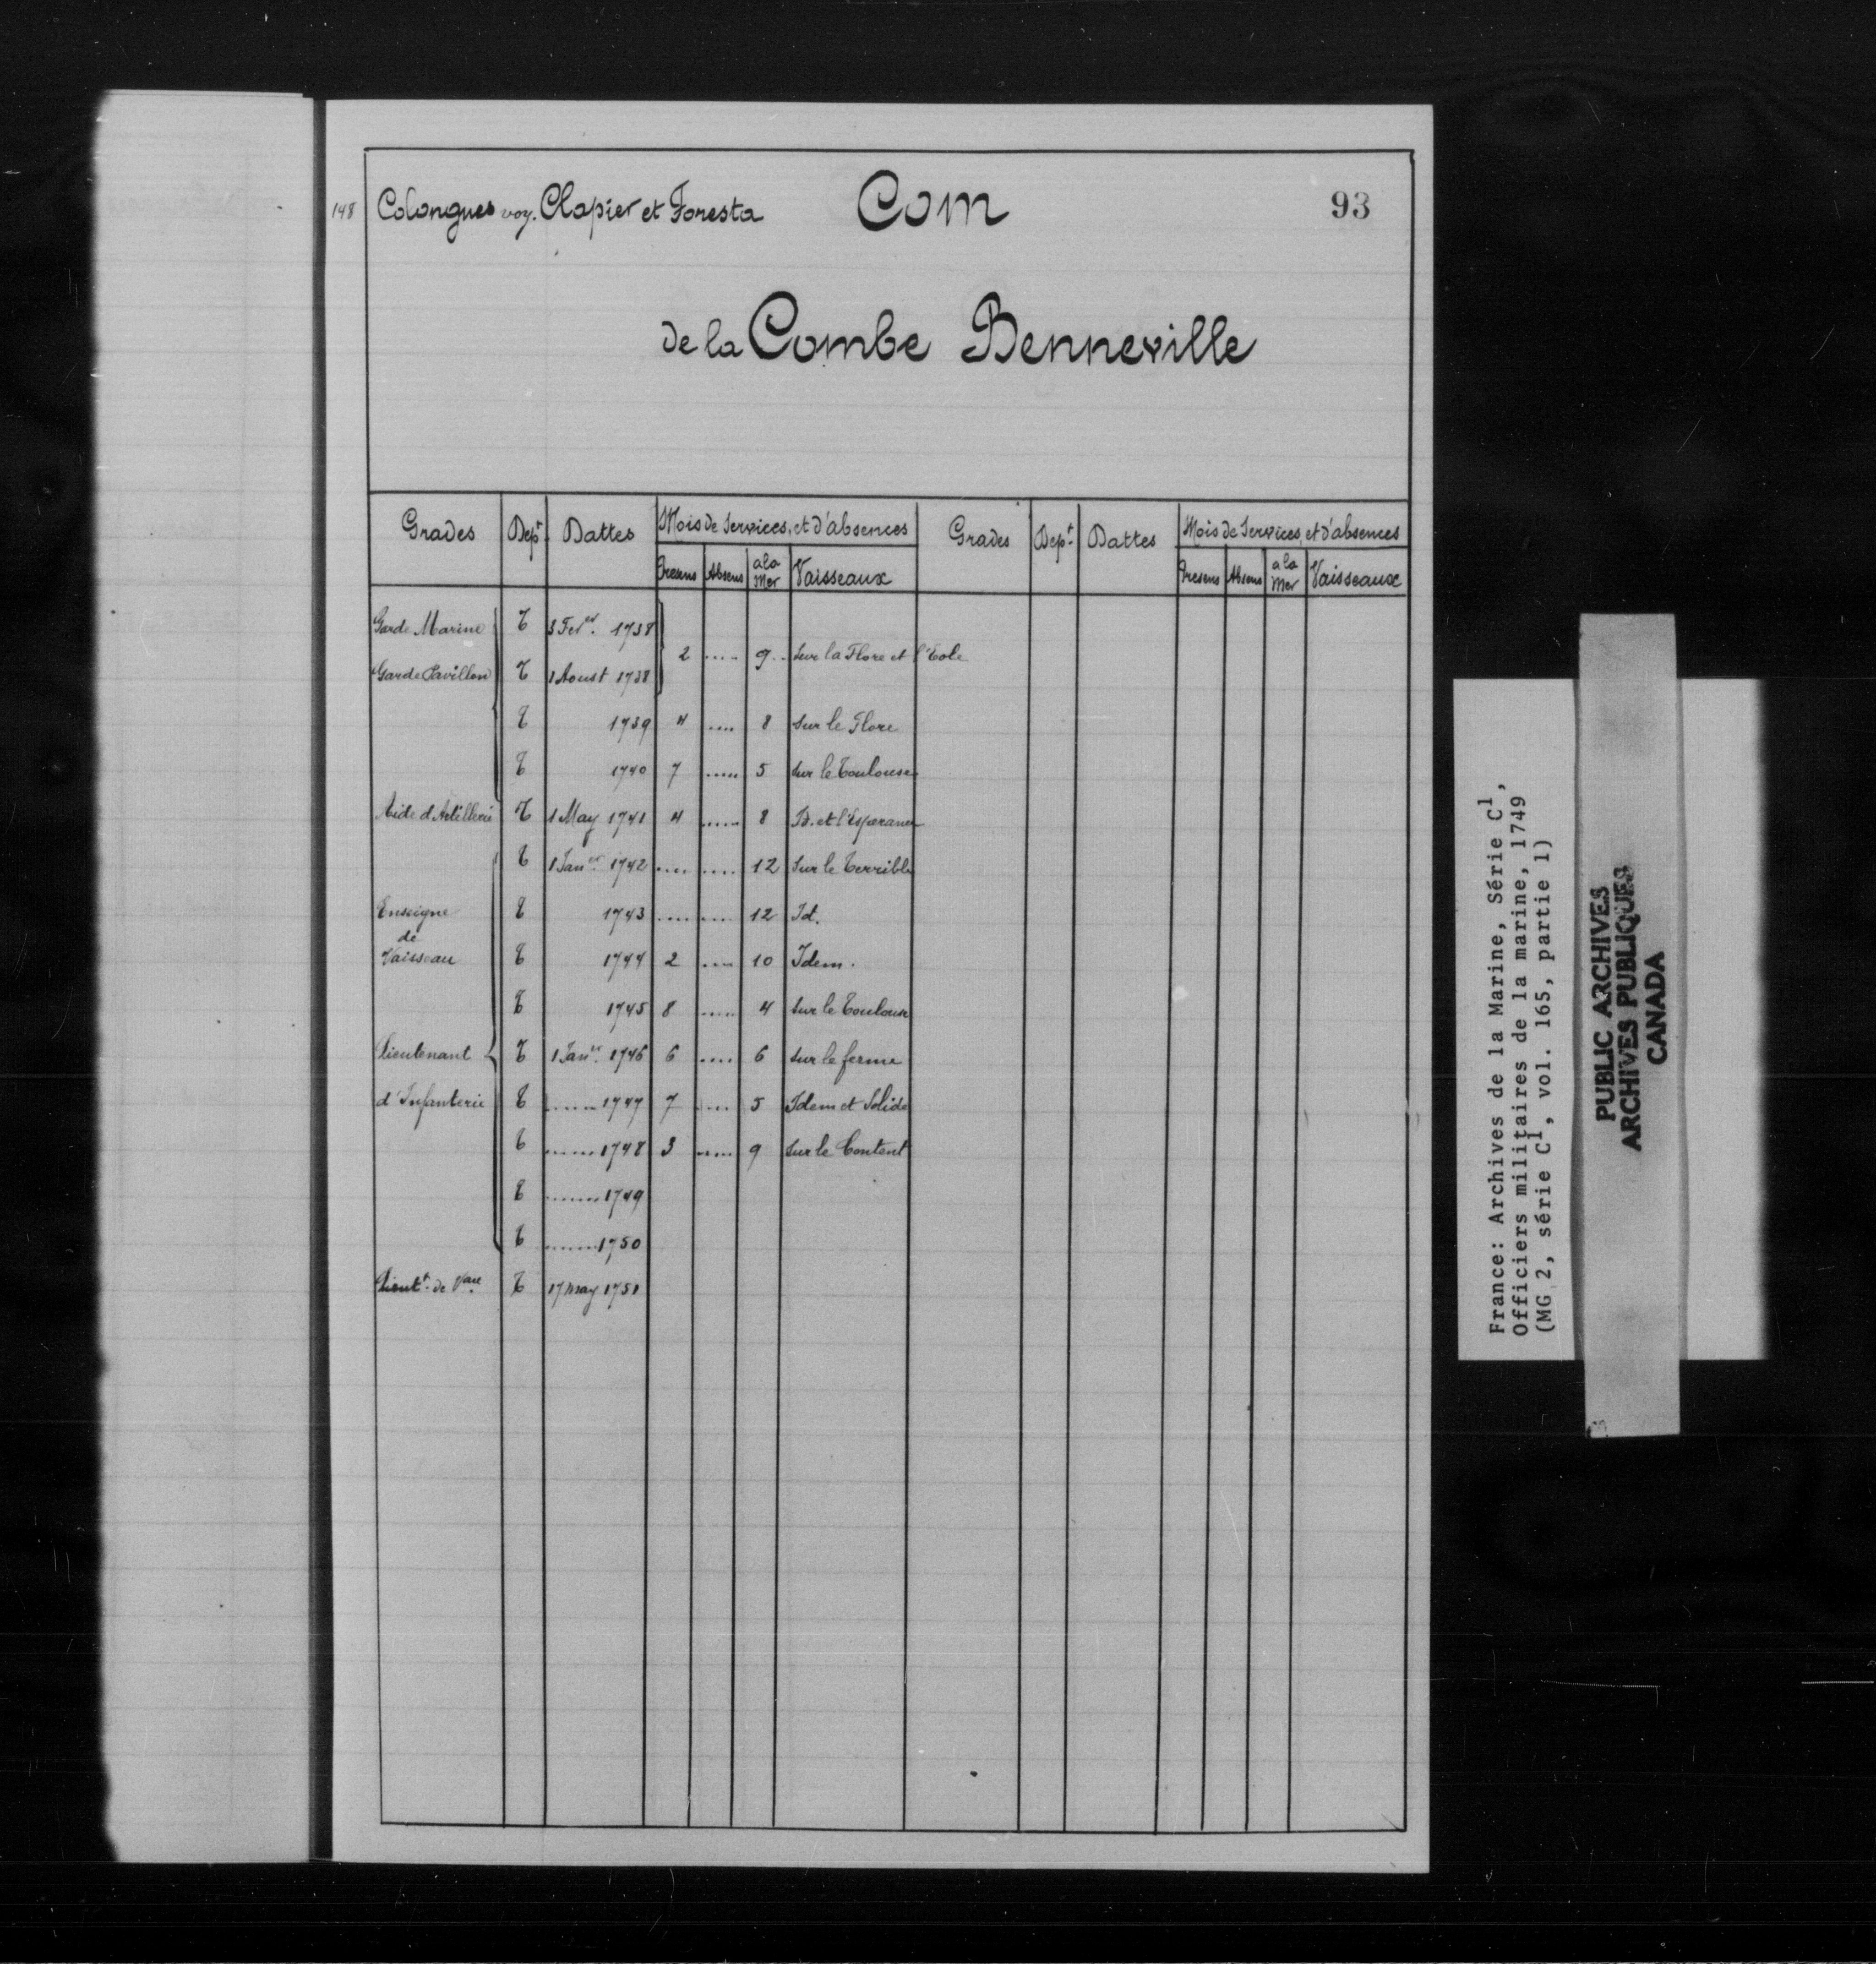 148 Colongues voy. Clapier et Foresta Com 93
de la Combe Benneville
Grades Dep.t Dattes Mois de Services, et d'absences Grades Dep.t Dattes Mois de Services, et d'absences
Presens Absens a la Mer Vaisseaux Presens Absens a la Mer Vaisseaux
Garde Marine T 3 Fev.er 1738
2 ..... 9.. sur la Flore et l'Eole
Garde Pavillon T 1 Aoust 1738
T 1739 4 .... 8 sur le Flore
T 1740 7 ..... 5 sur le Toulouse
Aide d'Artillerie T 1 May 1741 4 ...... 8 B. et l'Esperance
T 1 Jan.er 1742 .... .... 12 sur le Terrible
Enseigne T 1743 .... .... 12 Id.
de
Vaisseau T 1744 2 .... 10 Idem.
T 1745 8 ..... 4 sur le Toulouse
Lieutenant T 1 Jan.er 1746 6 .... 6 sur le ferme
d'Infanterie T ...... 1747 7 .... 5 Idem et Solide
T ...... 1748 3 ..... 9 sur le Content
T ....... 1749
T ....... 1750
Lieut.t de V.au T 17 may 1751
France: Archives de la Marine, Série C1,
Officiers militaires de la marine, 1749
(MG 2, série C1, vol. 165, partie 1)
PUBLIC ARCHIVES
ARCHIVES PUBLIQUES
CANADA